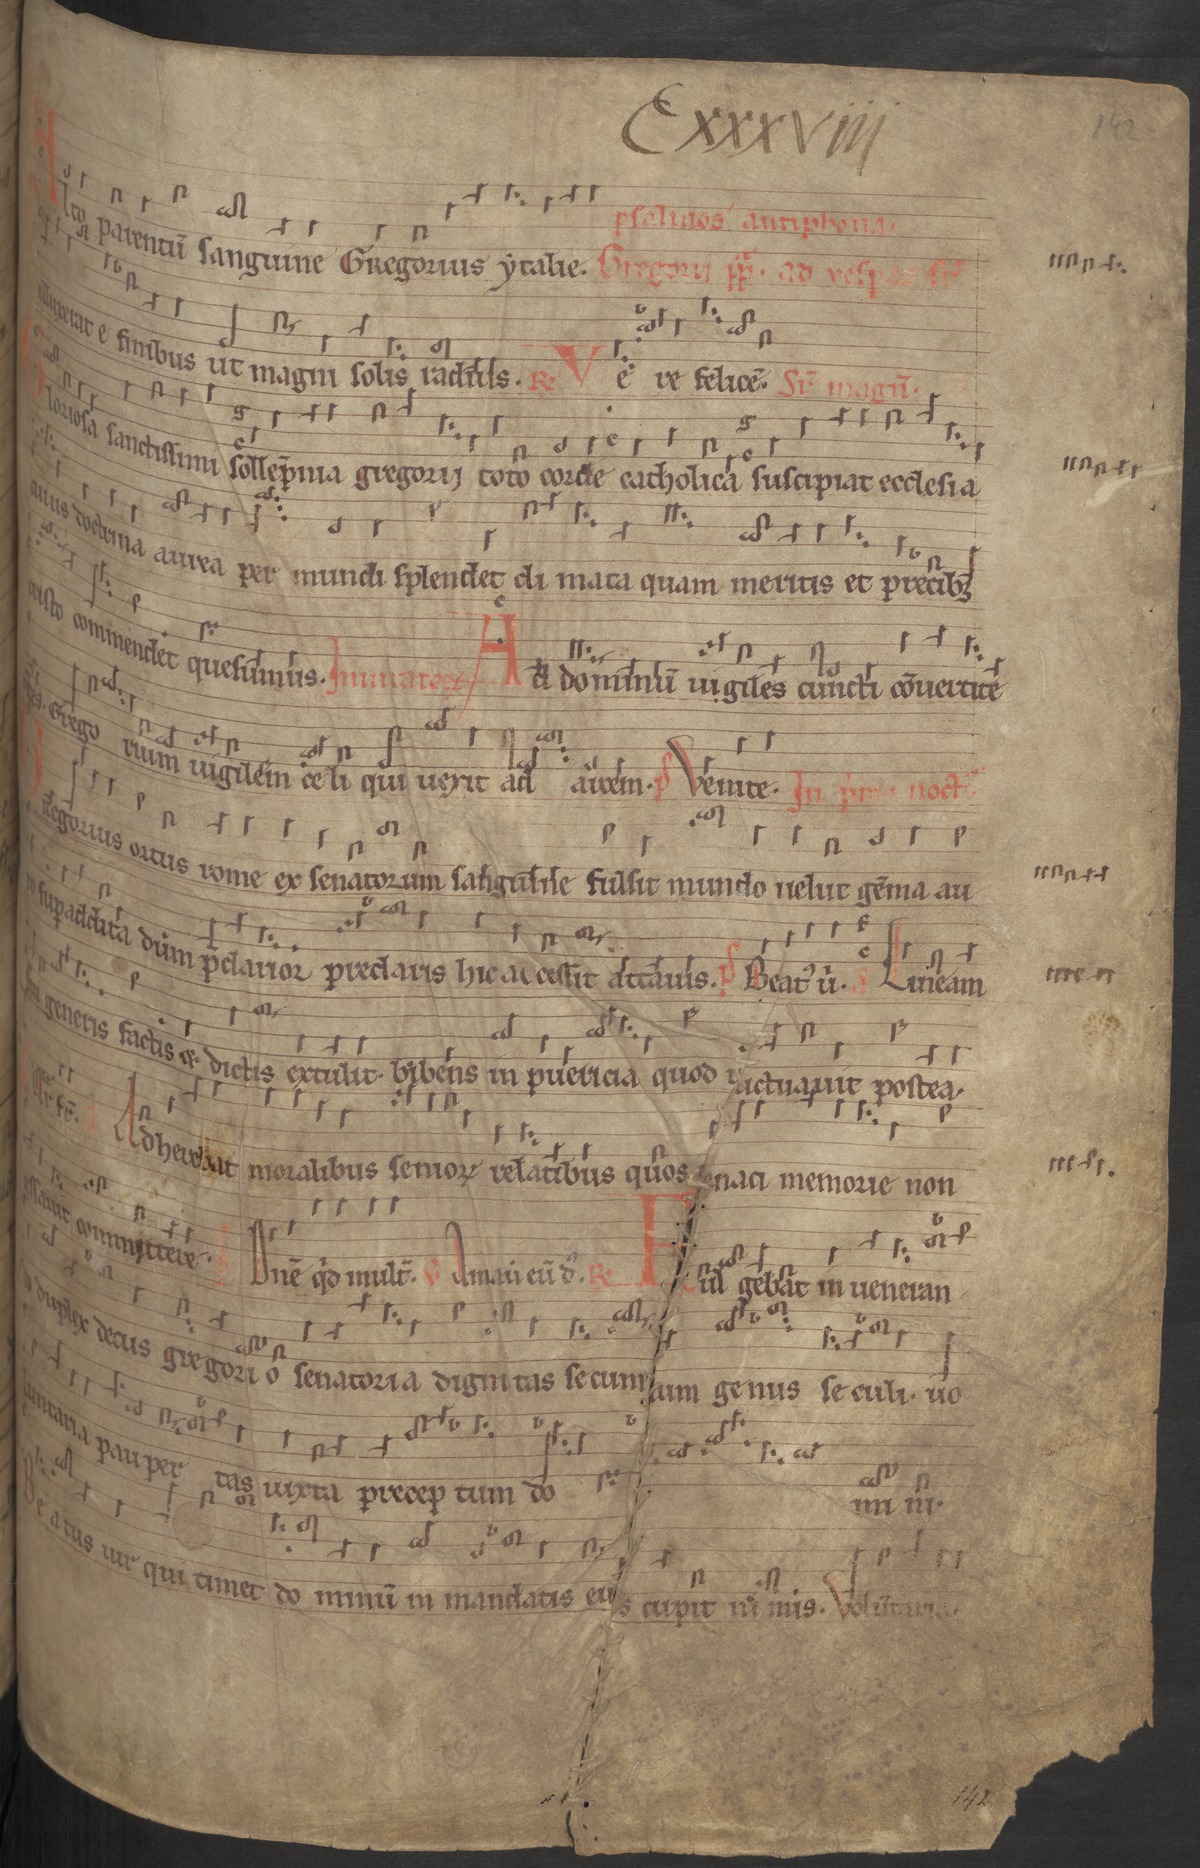 Cxxxviiij
142
psalmos antiphona.
Alto parentū sanguine Gregorius ytalie. Gregorii pp. ad vesperas sup
illuxerat e finibus ut magni solis radius. R̷ Ve re felicē. Sup magñ.
Gloriosa sanctissimi sollēpnia gregorij toto corde catholica suscipiat ecclesia
cuius doctrina aurea per mundi splendet climata quam meritis et precibꝫ
cristo commendet quesumus. Inuitator Ad dominū uigiles cuncti cōuertite
Gregorium uigilem celi qui uexit ad arcem. ps Venite. In primo noct
Gregorius ortus rome ex senatorum sanguine fulsit mundo uelut gēma au
ro supaddita dum p̄clarior preclaris hic accessit attauis. ps Beat' u̇. Lineam
sui generis factis et dictis extulit bibens in puericia quod ructuauit postea.
Adherebat moralibus seniorꝝ relatibus quos tenaci memorie non
cessauit committere. Dn̄e q̇d mult̄. v Amauit eū d. R̷ Fulgebat in ueneran
do duplex decus gregorio senatoria dignitas secundum genus seculi uo
luntaria paupertas iuxta preceptum domini.
Beatus uir qui timet dominū in mandatis eius cupit nimis. Voluntaria.
142